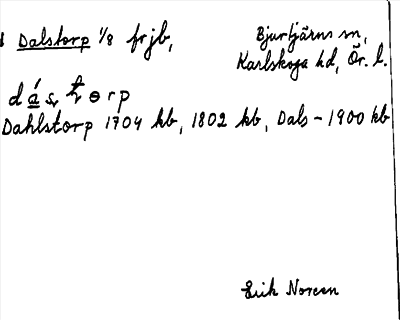 Dalstorp 1/8 frjb,
Bjurtjärns sn,
Karlskoga hd, Ör. l.
dá̱s̨t̨ɵrp
Dahlstorp 1704 kb, 1802 kb, Dals- 1900 kb
Erik Noreen